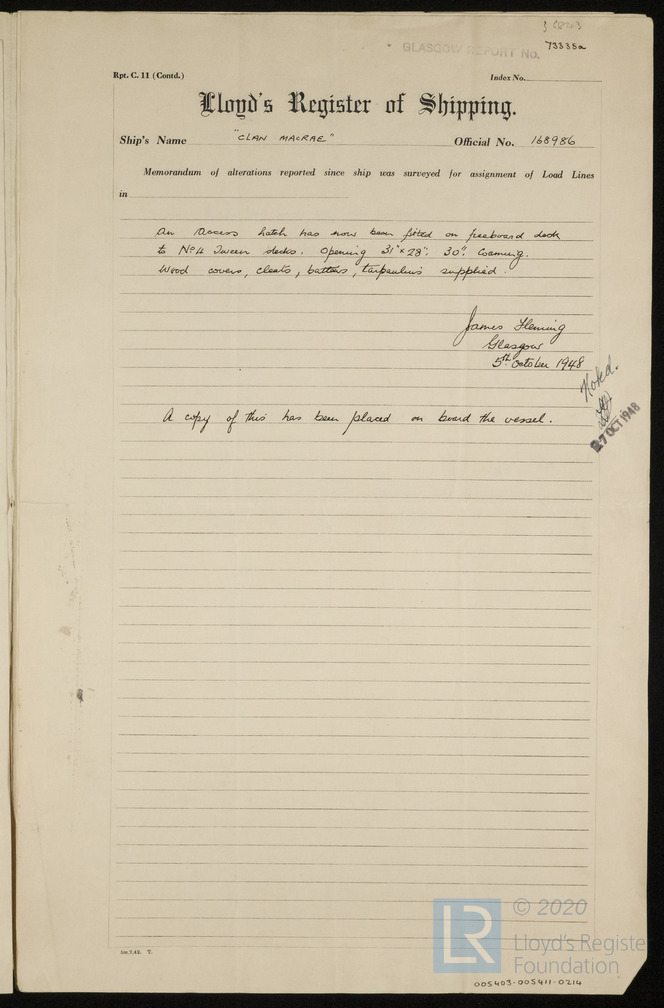 GLASGOW REPORT No. 73335a
Rpt. C. 11 (Contd.)
Index No.
Lloyd's Register of Shipping.
Ship's Name "CLAN MACRAE" Official No. 168986
Memorandum of alterations reported since ship was surveyed for assignment of Load Lines
in
An access hatch has now been fitted on freeboard deck
to No 4 Tween decks. Opening 31" x 28". 30" Coaming.
Wood covers, cleats, battens, tarpaulins supplied.
James Fleming
Glasgow
5th October 1948
Noted.
27 OCT 1948
A copy of this has been placed on board the vessel.
© 2020
Lloyd's Register
Foundation
LR
005403-005411-0214